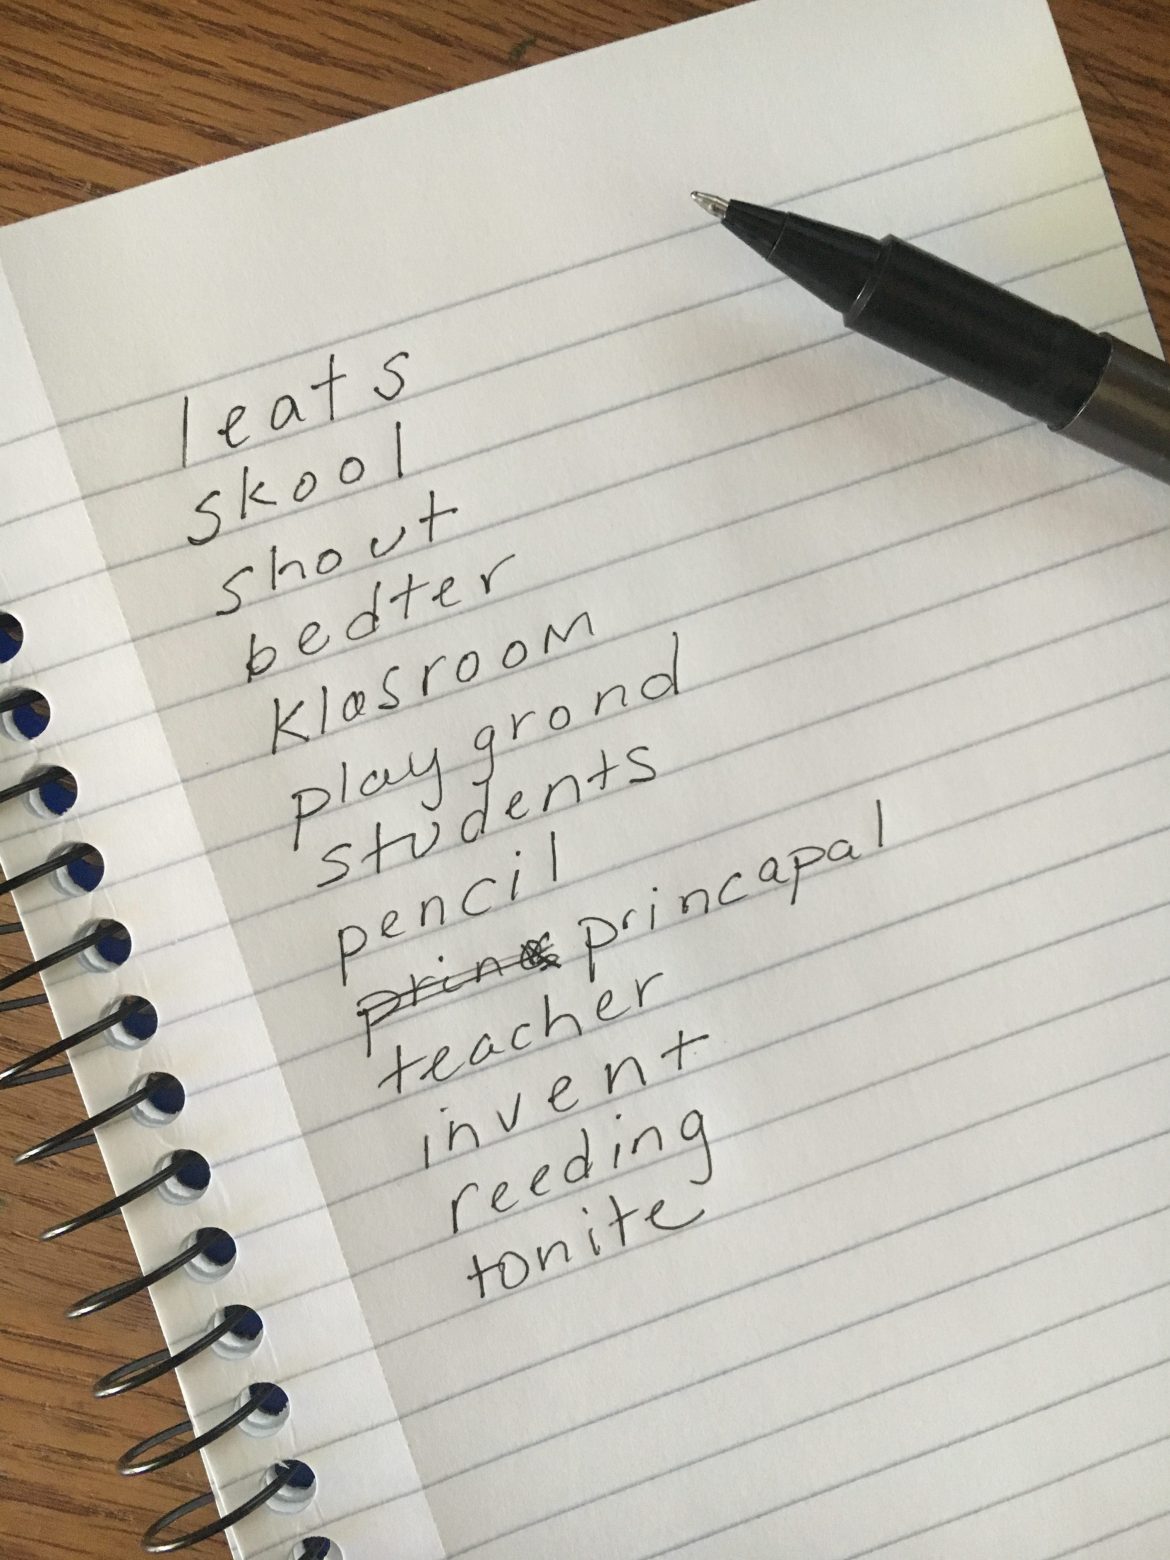 leats
skool
shout
bedter
klasroom
playgrond
students
pencil
princapal
teacher
invent
reeding
tonite